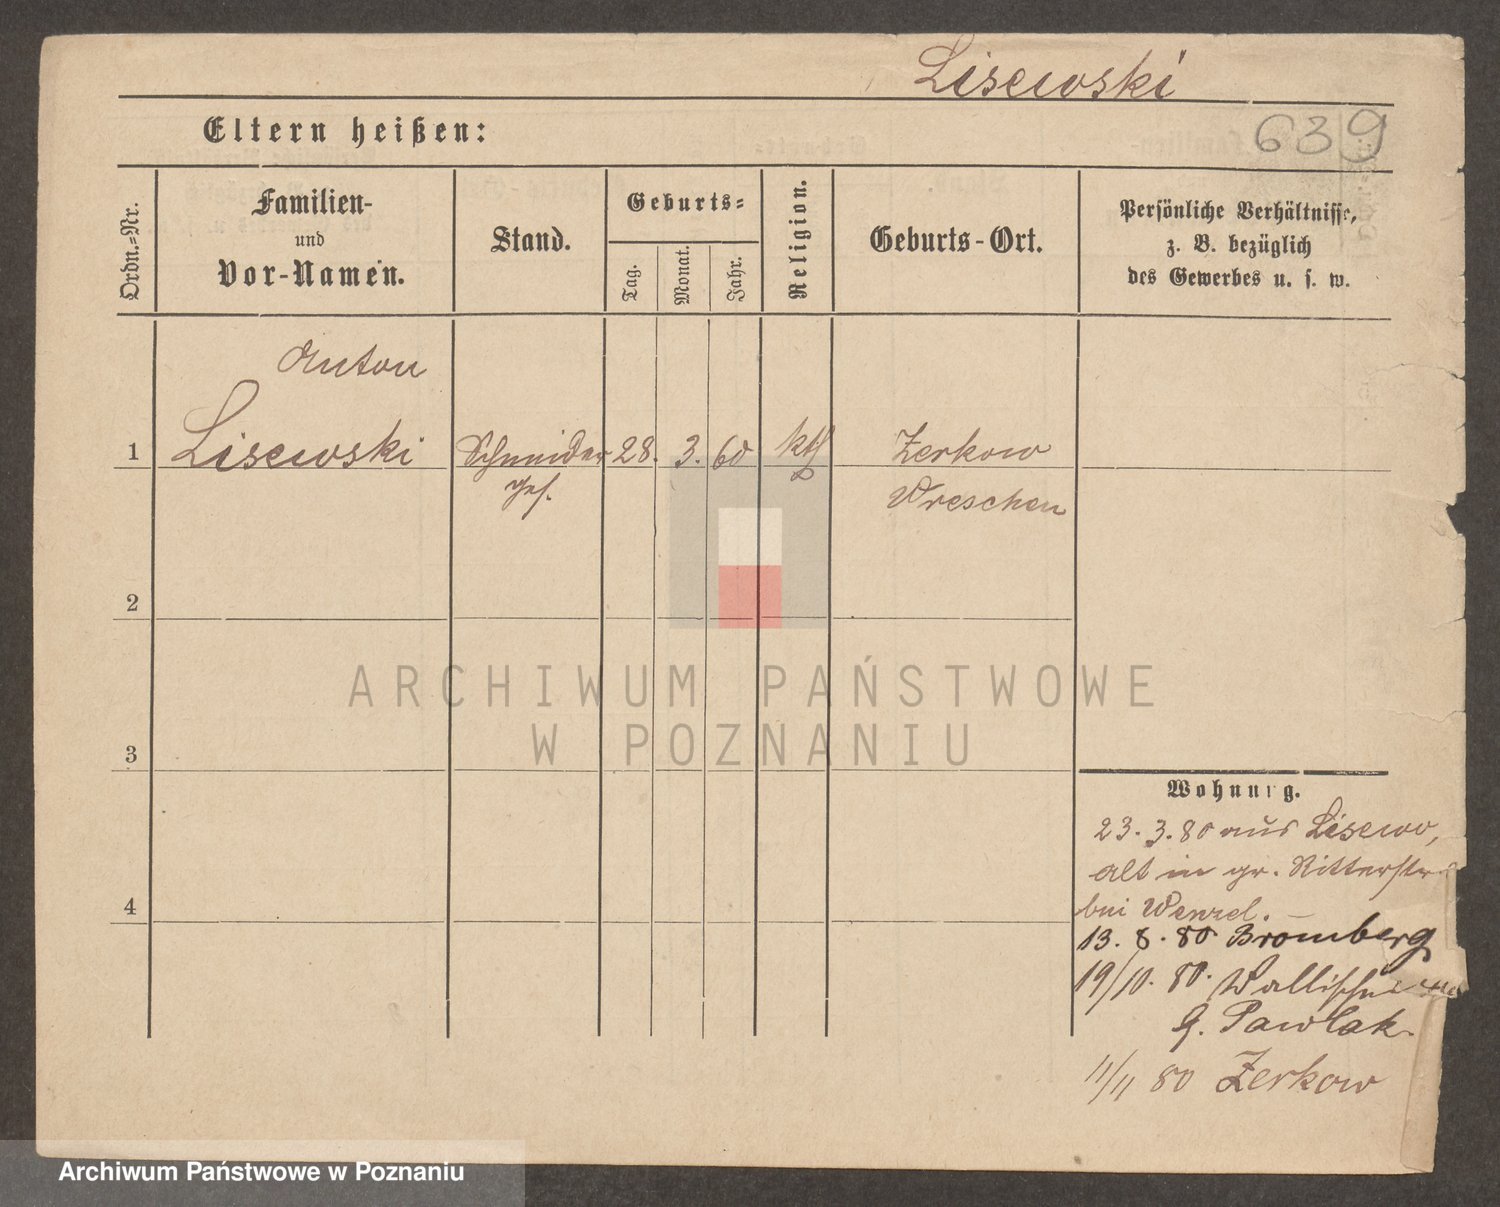 Lisewski
Eltern heißen:
639
Ordn.=Nr.
Familien-
und
Vor-Namen.
Stand.
Geburts=
Tag.
Monat.
Jahr.
Religion.
Geburts-Ort.
Persönliche Verhältnisse,
z. B. bezüglich
des Gewerbes u. s. w.
Anton
1 Lisewski Schneider 28. 3. 60 kth Zerkow
ges. Wreschen
2
3
4
ARCHIWUM PAŃSTWOWE
W POZNANIU
Wohnung.
23.3.80 aus Lisewo,
alt in gr. Ritterstr
bei Wenzel.
13. 8. 80 Bromberg
19/10. 80. Wallischei
G. Pawlak.
11/11 80 Zerkow
Archiwum Państwowe w Poznaniu